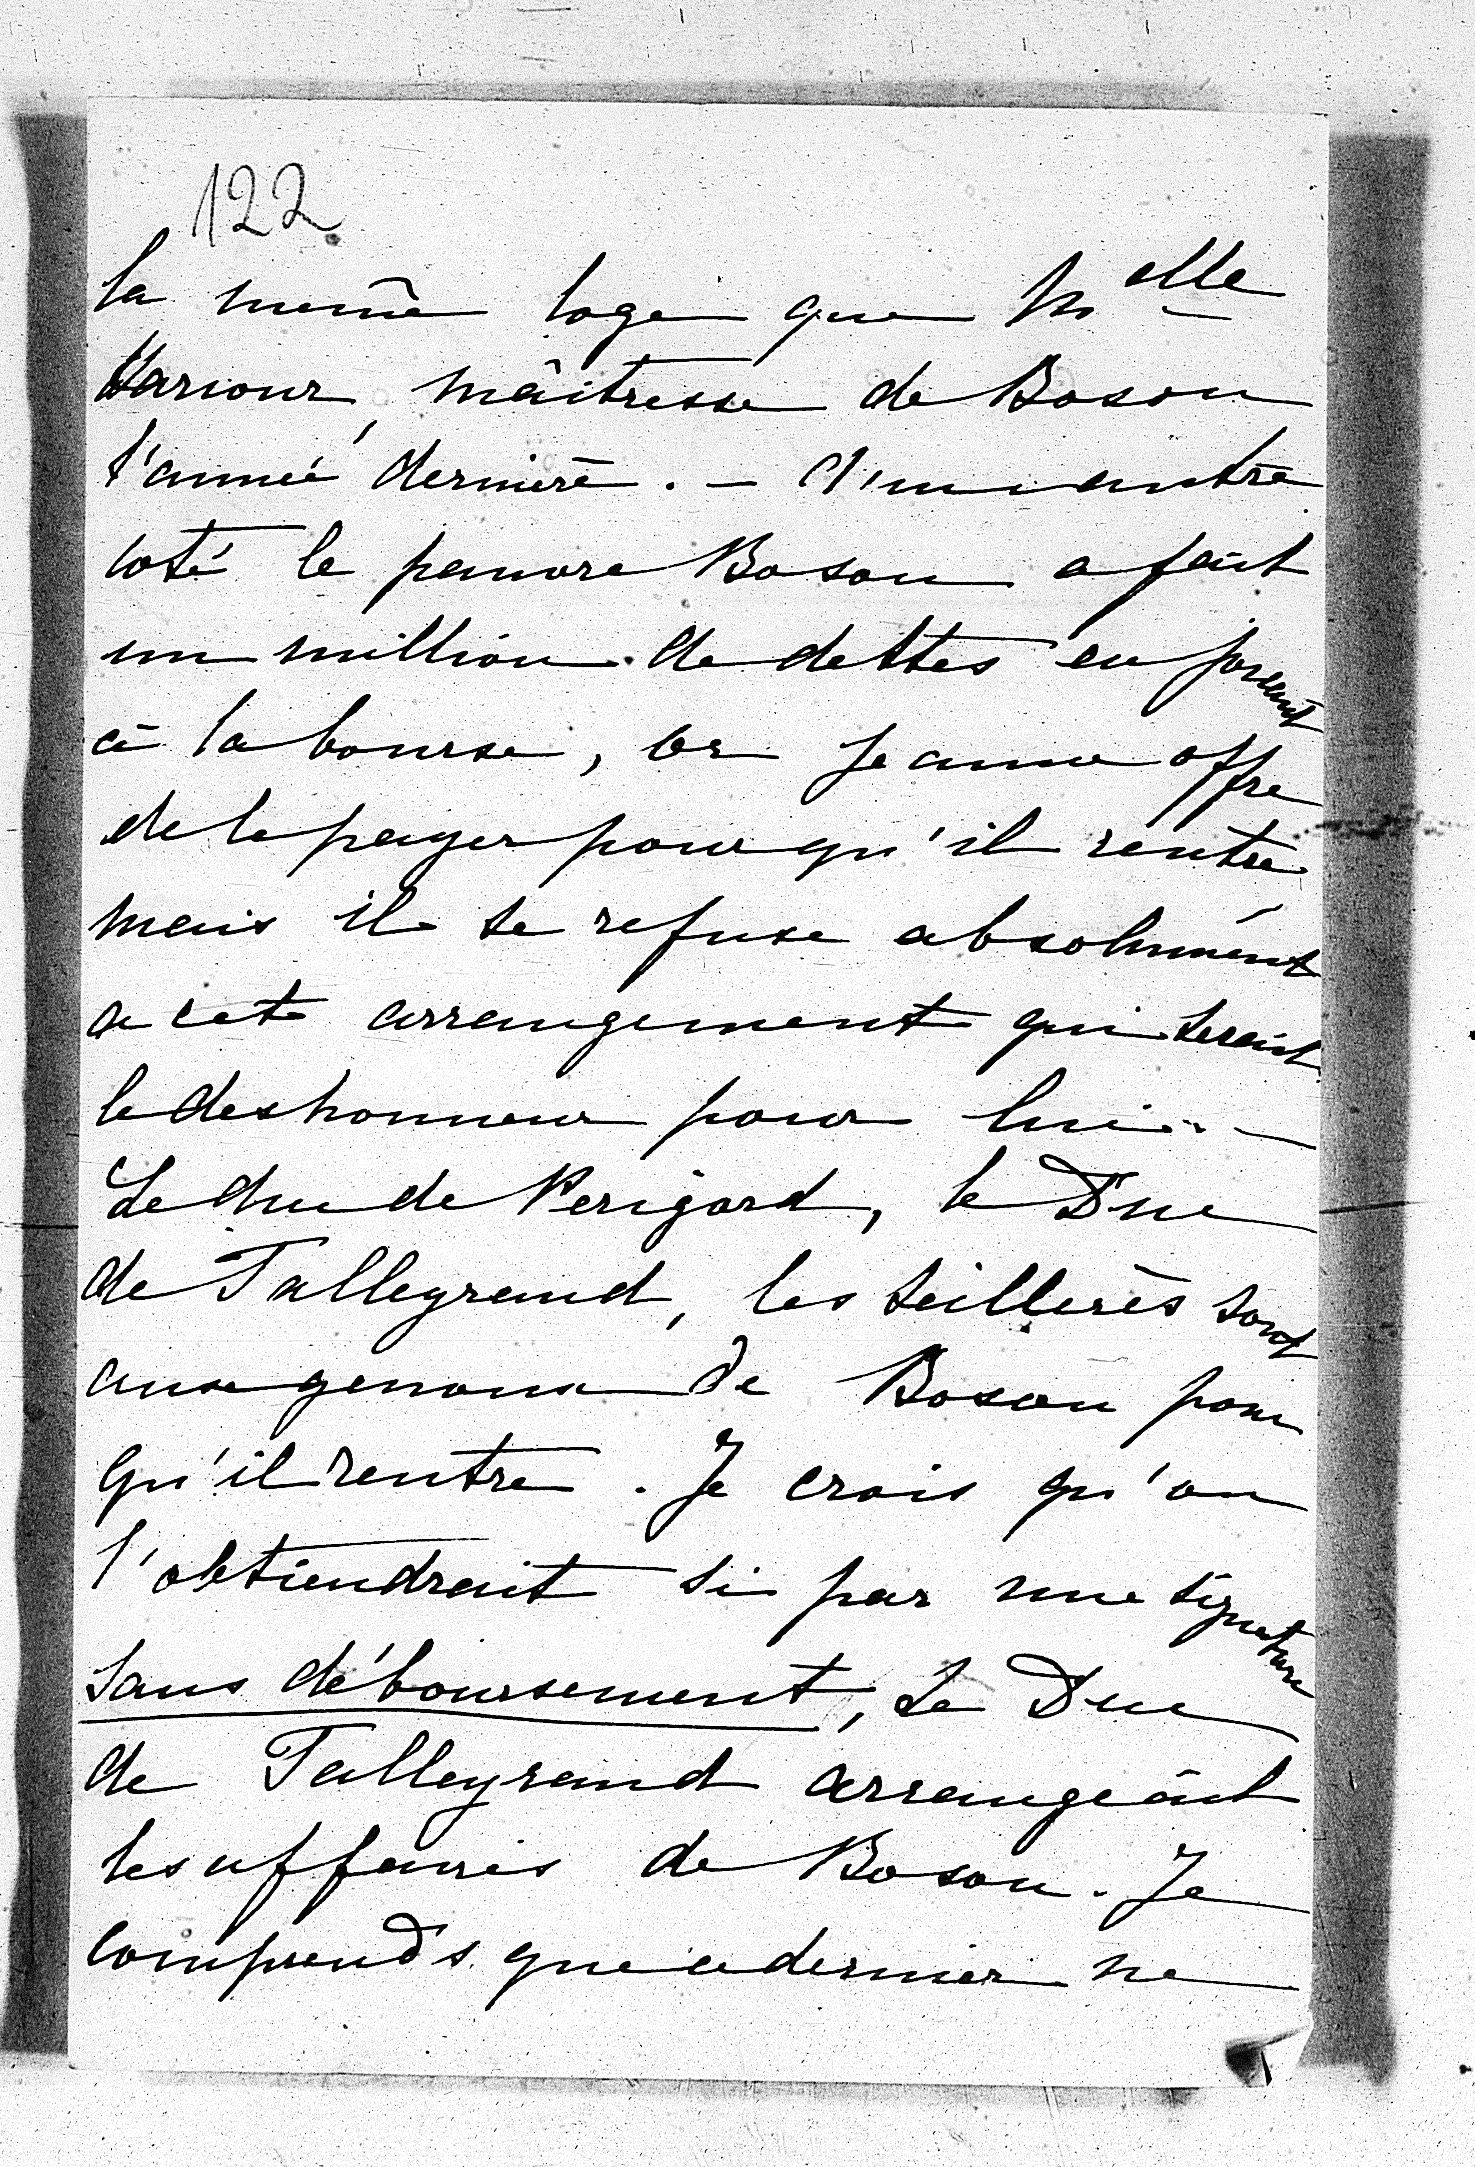 122
la même loge que Melle
Hariour, maîtresse de Boson
l'année dernière. — d'un autre
coté le pauvre Boson a fait
un million de dettes en jouant
à la bourse, or Jeanne offre
de le payer pour qu'il rentre
mais il se refuse absolument
a cet arrangement qui serait
le deshonneur pour lui. —
Le duc de Perigord, le Duc
de Talleyrand, les Seillères sont
aux genoux de Boson pour
qu'il rentre. Je crois qu'on
l'obtiendrait si par une signature
sans déboursement, Le Duc
de Talleyrand arrangeait
les affaires de Boson. Je
comprends que ce dernier ne